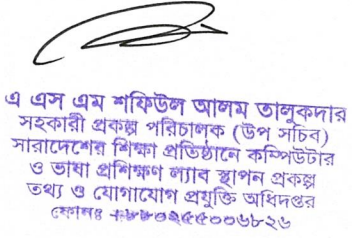 এ এস এম শফিউল আলম তালুকদার
সহকারী প্রকল্প পরিচালক (উপ সচিব)
সারাদেশের শিক্ষা প্রতিষ্ঠানে কম্পিউটার
ও ভাষা প্রশিক্ষণ ল্যাব স্থাপন প্রকল্প
তথ্য ও যোগাযোগ প্রযুক্তি অধিদপ্তর
ফোনঃ +৮৮০২৫৫০০৬৮২৬